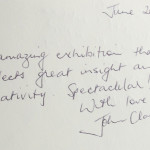 June 2
amazing exhibition tha
lects great insight an
ativity. Spectacular!
With love
John Cla